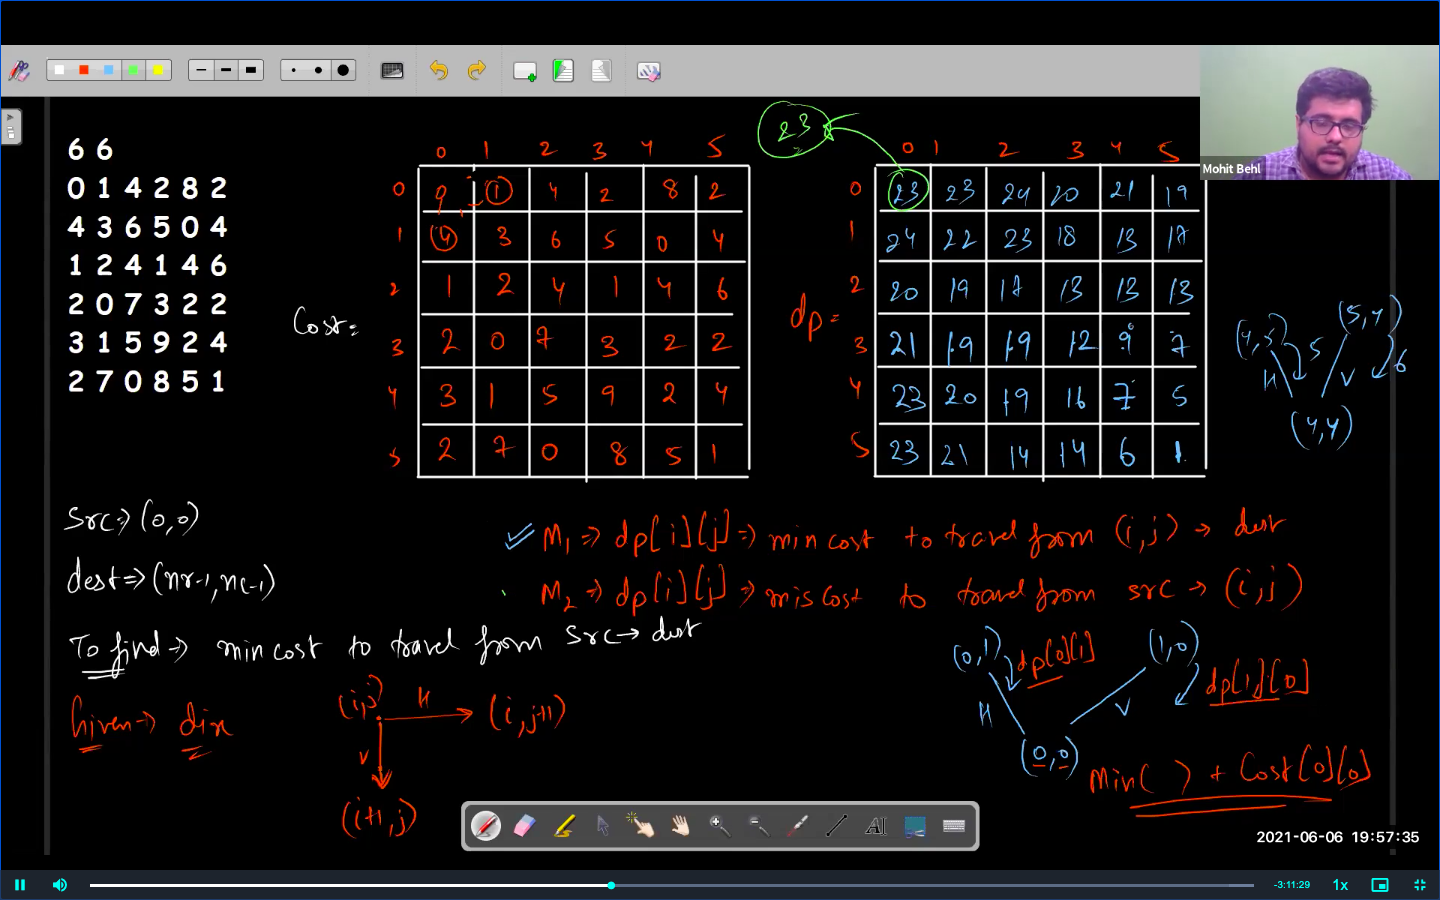 Mohit Behl
6 6
0 1 4 2 8 2
4 3 6 5 0 4
1 2 4 1 4 6
2 0 7 3 2 2
3 1 5 9 2 4
2 7 0 8 5 1
Cost =
0 1 2 3 4 5
0 0 1 4 2 8 2
1 4 3 6 5 0 4
2 1 2 4 1 4 6
3 2 0 7 3 2 2
4 3 1 5 9 2 4
5 2 7 0 8 5 1
23
dp =
0 1 2 3 4 5
0 23 23 24 20 21 19
1 24 22 23 18 13 17
2 20 19 17 13 13 13
3 21 19 19 12 9 7
4 23 20 19 16 7 5
5 23 21 14 14 6 1
(4,5) (5,4)
5 6
H V
(4,4)
Src => (0,0)
dest => (nr-1, nc-1)
To find => min cost to travel from src → dest
Given → dir
(i,j) H (i, j+1)
V
(i+1, j)
M1 => dp[i][j] => min cost to travel from (i,j) → dest
M2 => dp[i][j] => mis cost to travel from src → (i,j)
(0,1) dp[0][1] (1,0) dp[1][0]
H V
(0,0)
Min( ) + Cost[0][0]
AI
2021-06-06 19:57:35
-3:11:29 1x